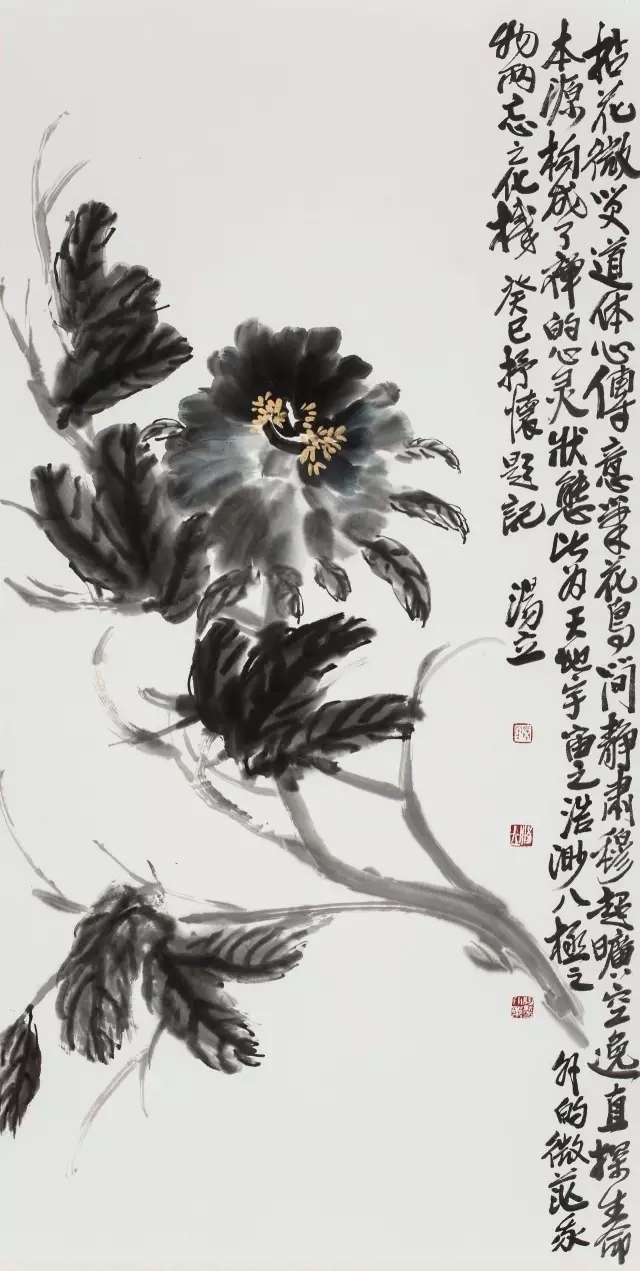 拈花微笑道体心傳意筆花鸟简静肃穆超曠空逸直探生命
本源构成了禅的心灵狀態此为天地宇宙之浩渺八極之外的微茫我
物两忘之化機 癸巳抒懷題記 湯立